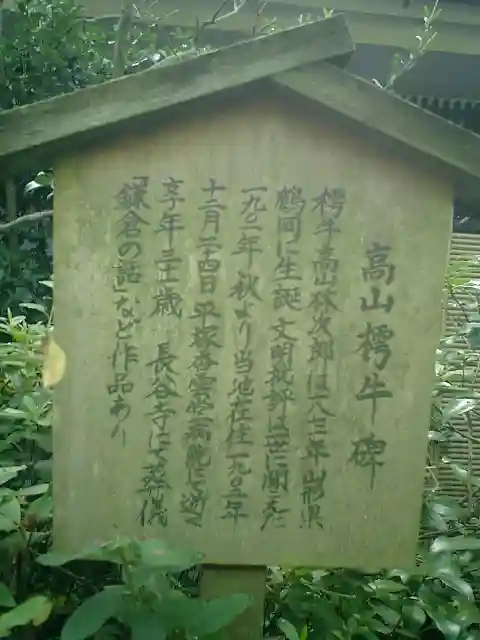 高山樗牛碑
樗牛高山林次郎は一八七一年山形県
鶴岡に生誕文明批評は世に聞えた
一九〇一年秋より当地在住一九〇二年
十二月二十四日平塚杏雲堂病院に逝く
享年三十一歳 長谷寺にて葬儀
「鎌倉の話」など作品あり